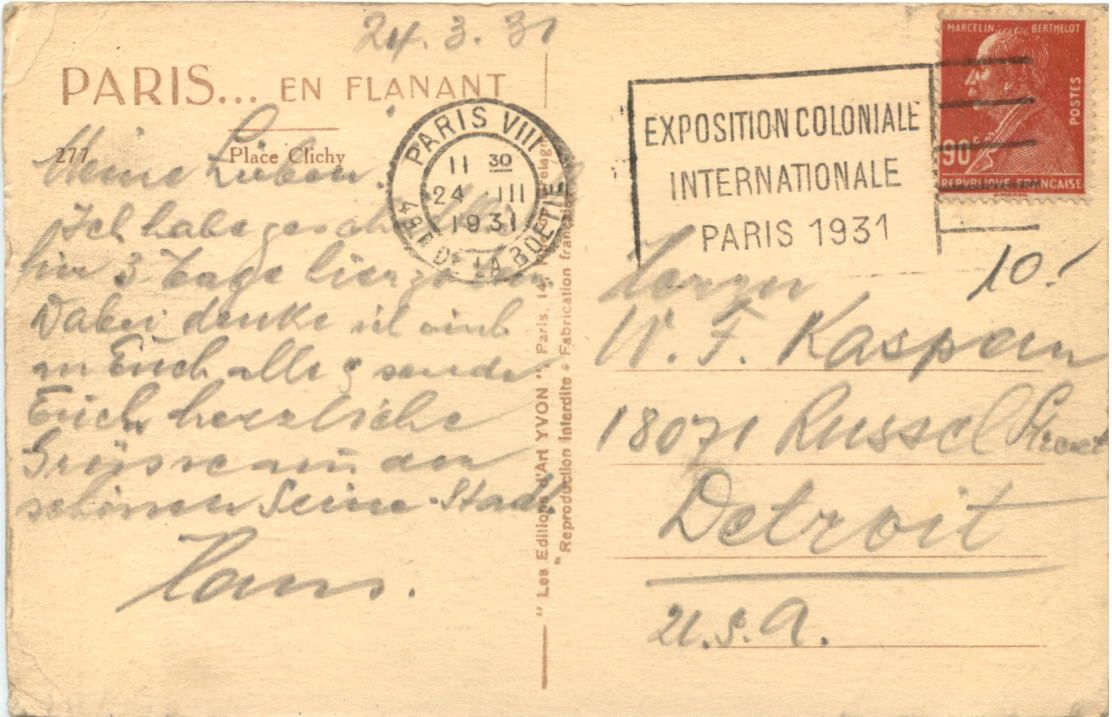 24.3.31
PARIS... EN FLANANT
277 Place Clichy
Meine Lieben.
Ich habe geschäftlich
hier 3 Tage hier zu tun
Dabei denke ich auch
an Euch alle & sende
Euch herzliche
Grüsse aus der
schönen Seine-Stadt
Hans.
PARIS VIII
11 30
24 III
1931
48 R DE LA BOETIE
EXPOSITION COLONIALE
INTERNATIONALE
PARIS 1931
MARCELIN BERTHELOT
POSTES
90c
REPVBLIQVE FRANCAISE
10.
"Les Editions d'Art YVON", Paris, 14,
Reproduction Interdite - Fabrication française
Herrn
W. F. Kaspern
18071 Russel Street
Detroit
U.S.A.